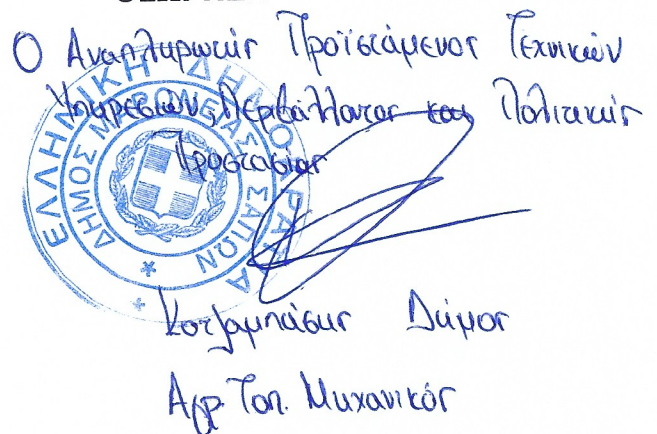 Ο Αναπληρωτής Προϊστάμενος Τεχνικών
Υπηρεσιών, Περιβάλλοντος και Πολιτικής
Προστασίας
ΕΛΛΗΝΙΚΗ ΔΗΜΟΚΡΑΤΙΑ
ΔΗΜΟΣ ΜΑΡΩΝΕΙΑΣ ΣΑΠΩΝ
Κοτζαμπάσης Δήμος
Αγρ. Τοπ. Μηχανικός